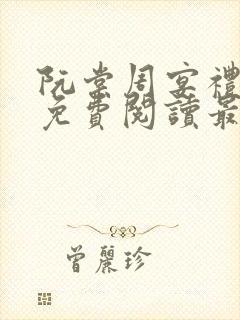 阮棠周宴禮
免費閱讀最
曾麗珍